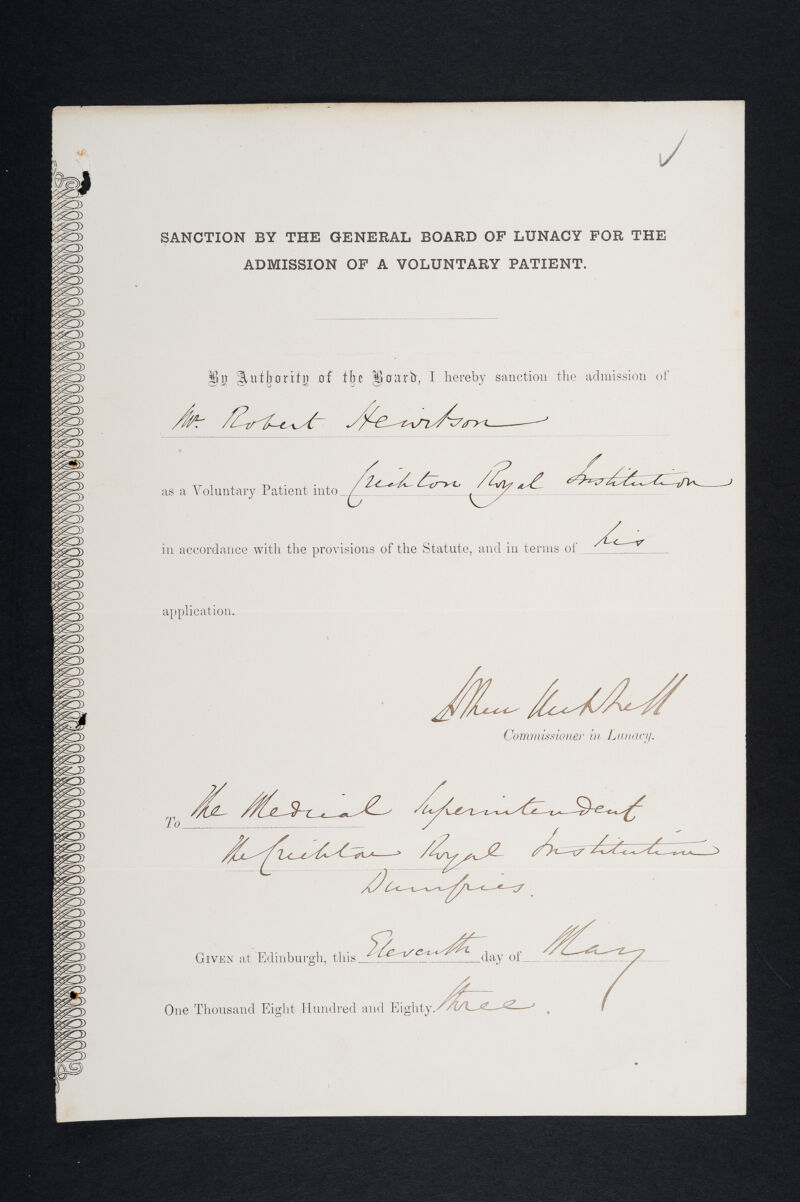 SANCTION BY THE GENERAL BOARD OF LUNACY FOR THE
ADMISSION OF A VOLUNTARY PATIENT.
By Authority of the Board, I hereby sanction the admission of
Mr. Robert Hewitson
as a Voluntary Patient into Crichton Royal Institution
in accordance with the provisions of the Statute, and in terms of his
application.
Mitchell
Commissioner in Lunacy.
To The Medical Superintendent
The Crichton Royal Institution
Dumfries.
GIVEN at Edinburgh, this Eleventh day of May
One Thousand Eight Hundred and Eighty three.